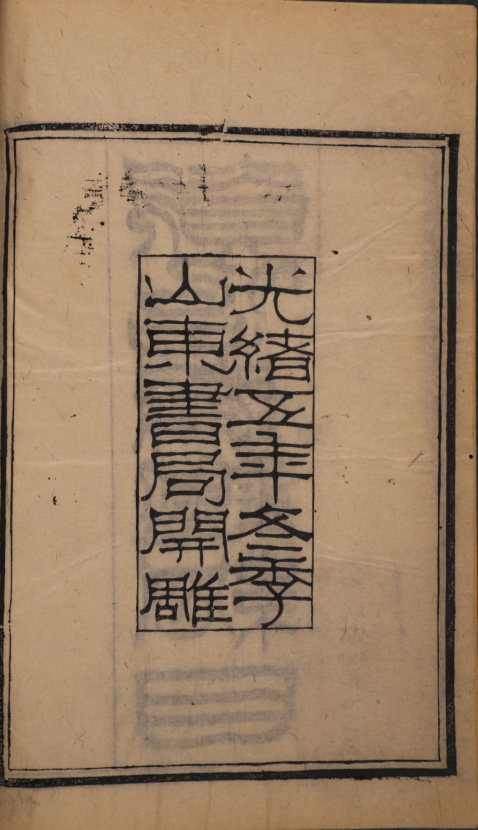 光緒五年冬季
山東書局開雕